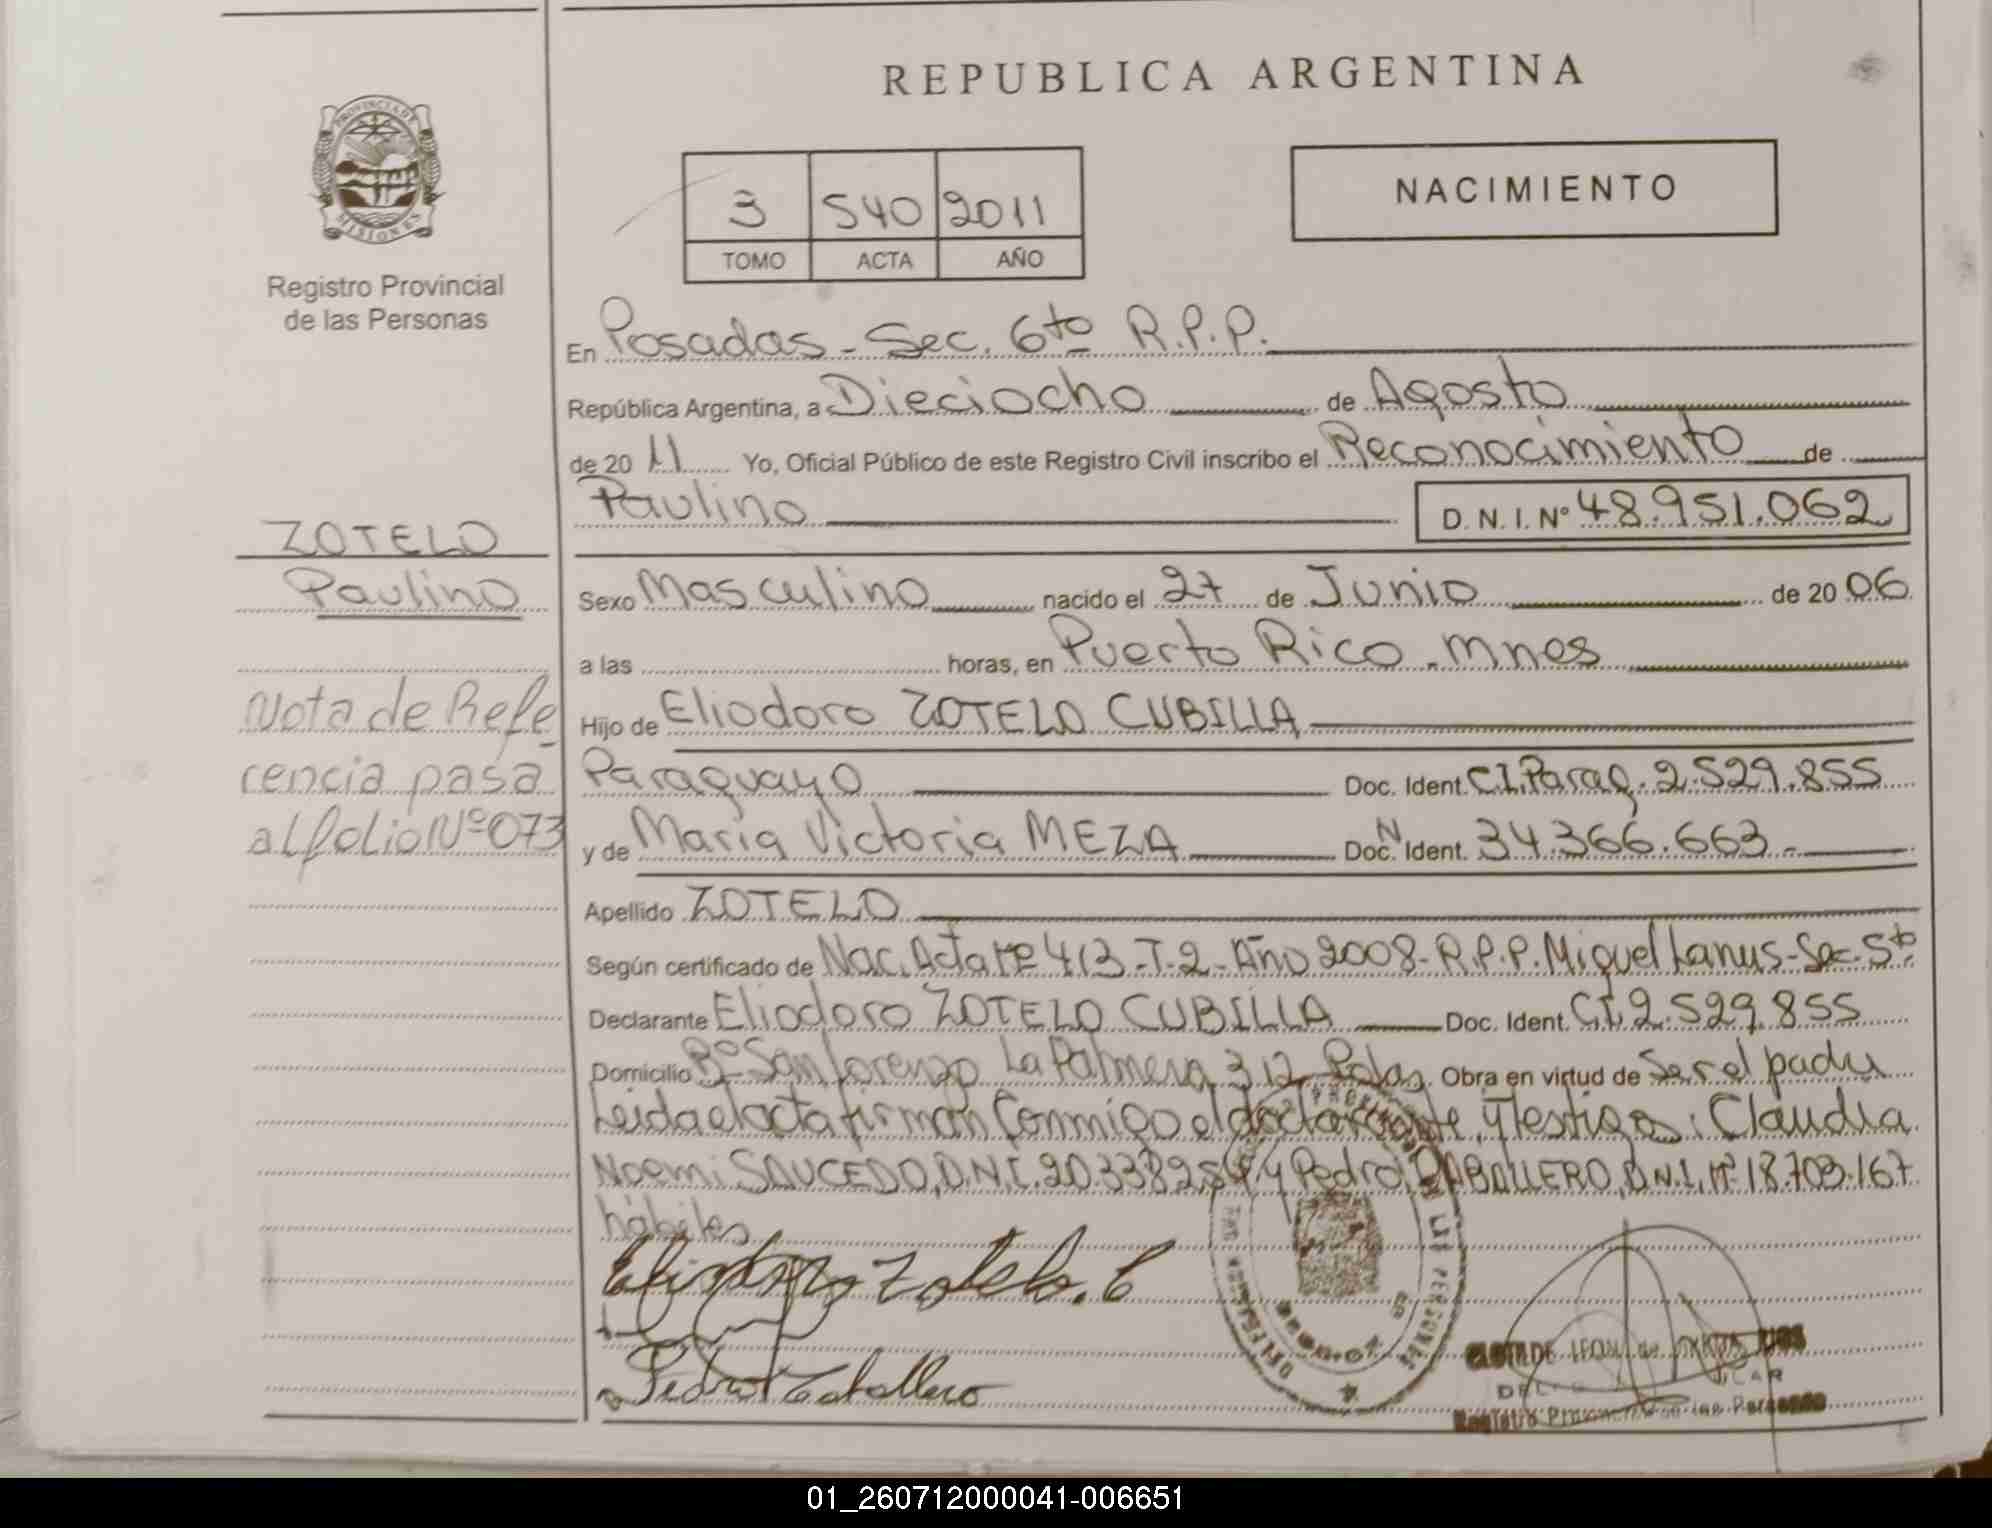 REPUBLICA ARGENTINA
PROVINCIA DE
MISIONES
Registro Provincial
de las Personas
3 540 2011
TOMO ACTA AÑO
NACIMIENTO
En Posadas - Sec. 6to R.P.P.
República Argentina, a Dieciocho de Agosto
de 20 11 Yo, Oficial Público de este Registro Civil inscribo el Reconocimiento de
Paulino D. N. I. Nº 48.951.062
ZOTELO
Paulino
Sexo Masculino nacido el 27 de Junio de 20 06
a las horas, en Puerto Rico - Mnes
Nota de Refe
rencia pasa
al folio Nº 073
Hijo de Eliodoro ZOTELO CUBILLA
Paraguayo Doc. Ident. C.I. Parag. 2.529.855
y de Maria Victoria MEZA Doc. N Ident. 34.366.663.-
Apellido ZOTELO
Según certificado de Nac. Acta Nº 413 - T. 2 - Año 2008 - R.P.P. Miguel Lanus - Sec. 5to
Declarante Eliodoro ZOTELO CUBILLA Doc. Ident. C.I. 2.529.855
Domicilio Bº San Lorenzo La Palmera 312 Pdas. Obra en virtud de Ser el padre
Leida el acta firman Conmigo el declarante, y testigos: Claudia
Noemi SAUCEDO, D.N.I. 20.338.254 y Pedro CABALLERO, D.N.I. Nº 18.703.167
hábiles
Eliodoro Zotelo. C
Pedro Caballero
Registro Provincial de las Personas
01_260712000041-006651